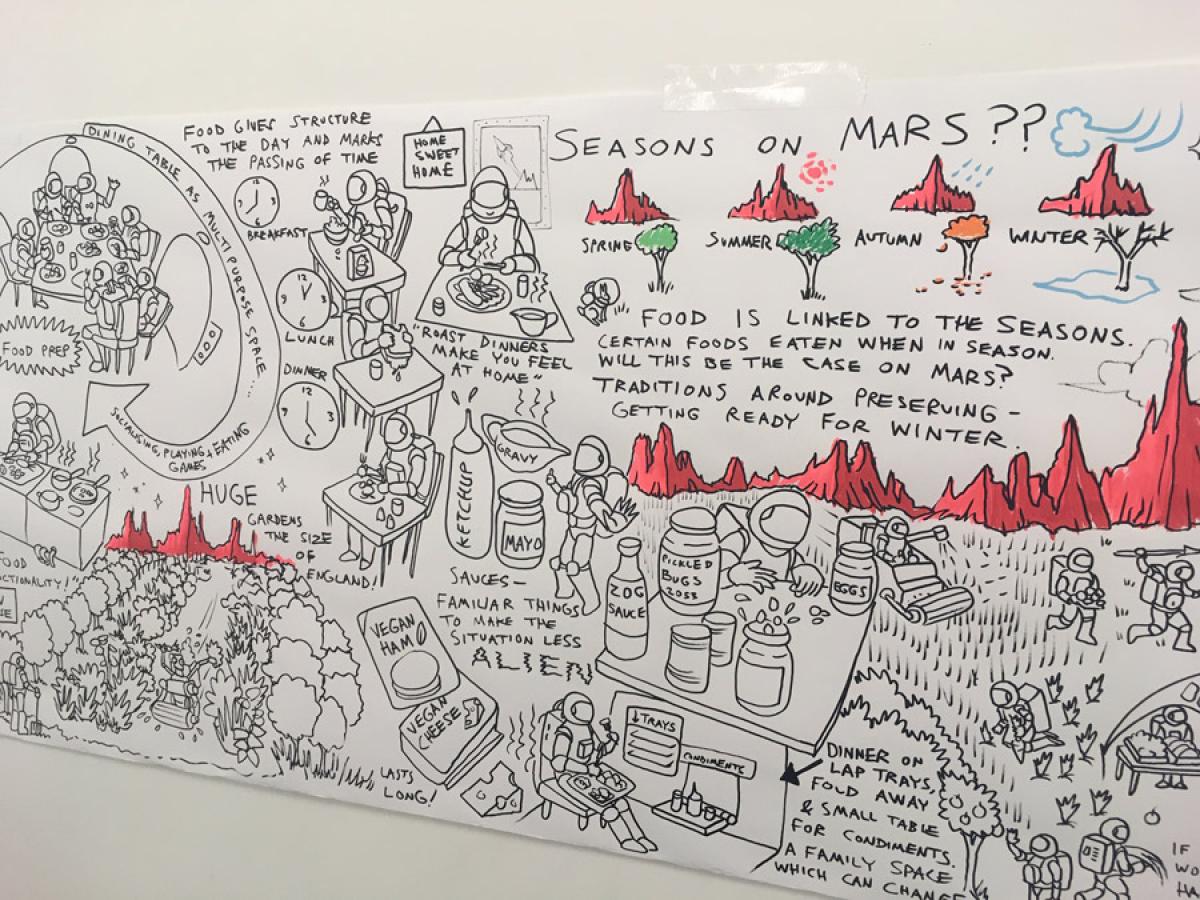 DINING TABLE AS MULTI PURPOSE SPACE...
SOCIALISING, PLAYING + EATING
GAMES
FOOD PREP
FOOD GIVES STRUCTURE
TO THE DAY AND MARKS
THE PASSING OF TIME
BREAKFAST
LUNCH
DINNER
HOME
SWEET
HOME
"ROAST DINNERS
MAKE YOU FEEL
AT HOME"
SEASONS ON MARS??
SPRING
SUMMER
AUTUMN
WINTER
FOOD IS LINKED TO THE SEASONS.
CERTAIN FOODS EATEN WHEN IN SEASON.
WILL THIS BE THE CASE ON MARS?
TRADITIONS AROUND PRESERVING -
GETTING READY FOR WINTER.
HUGE
GARDENS
THE SIZE
OF
ENGLAND!
FOOD
CTIONALITY!"
KETCHUP
GRAVY
MAYO
SAUCES-
FAMILIAR THINGS
TO MAKE THE
SITUATION LESS
ALIEN
VEGAN
HAM
VEGAN
CHEESE
LASTS
LONG!
ZOG
SAUCE
PICKLED
BUGS
2053
EGGS
TRAYS
CONDIMENTS
DINNER ON
LAP TRAYS,
FOLD AWAY
& SMALL TABLE
FOR CONDIMENTS.
A FAMILY SPACE
WHICH CAN CHANGE
IF
WO
HA